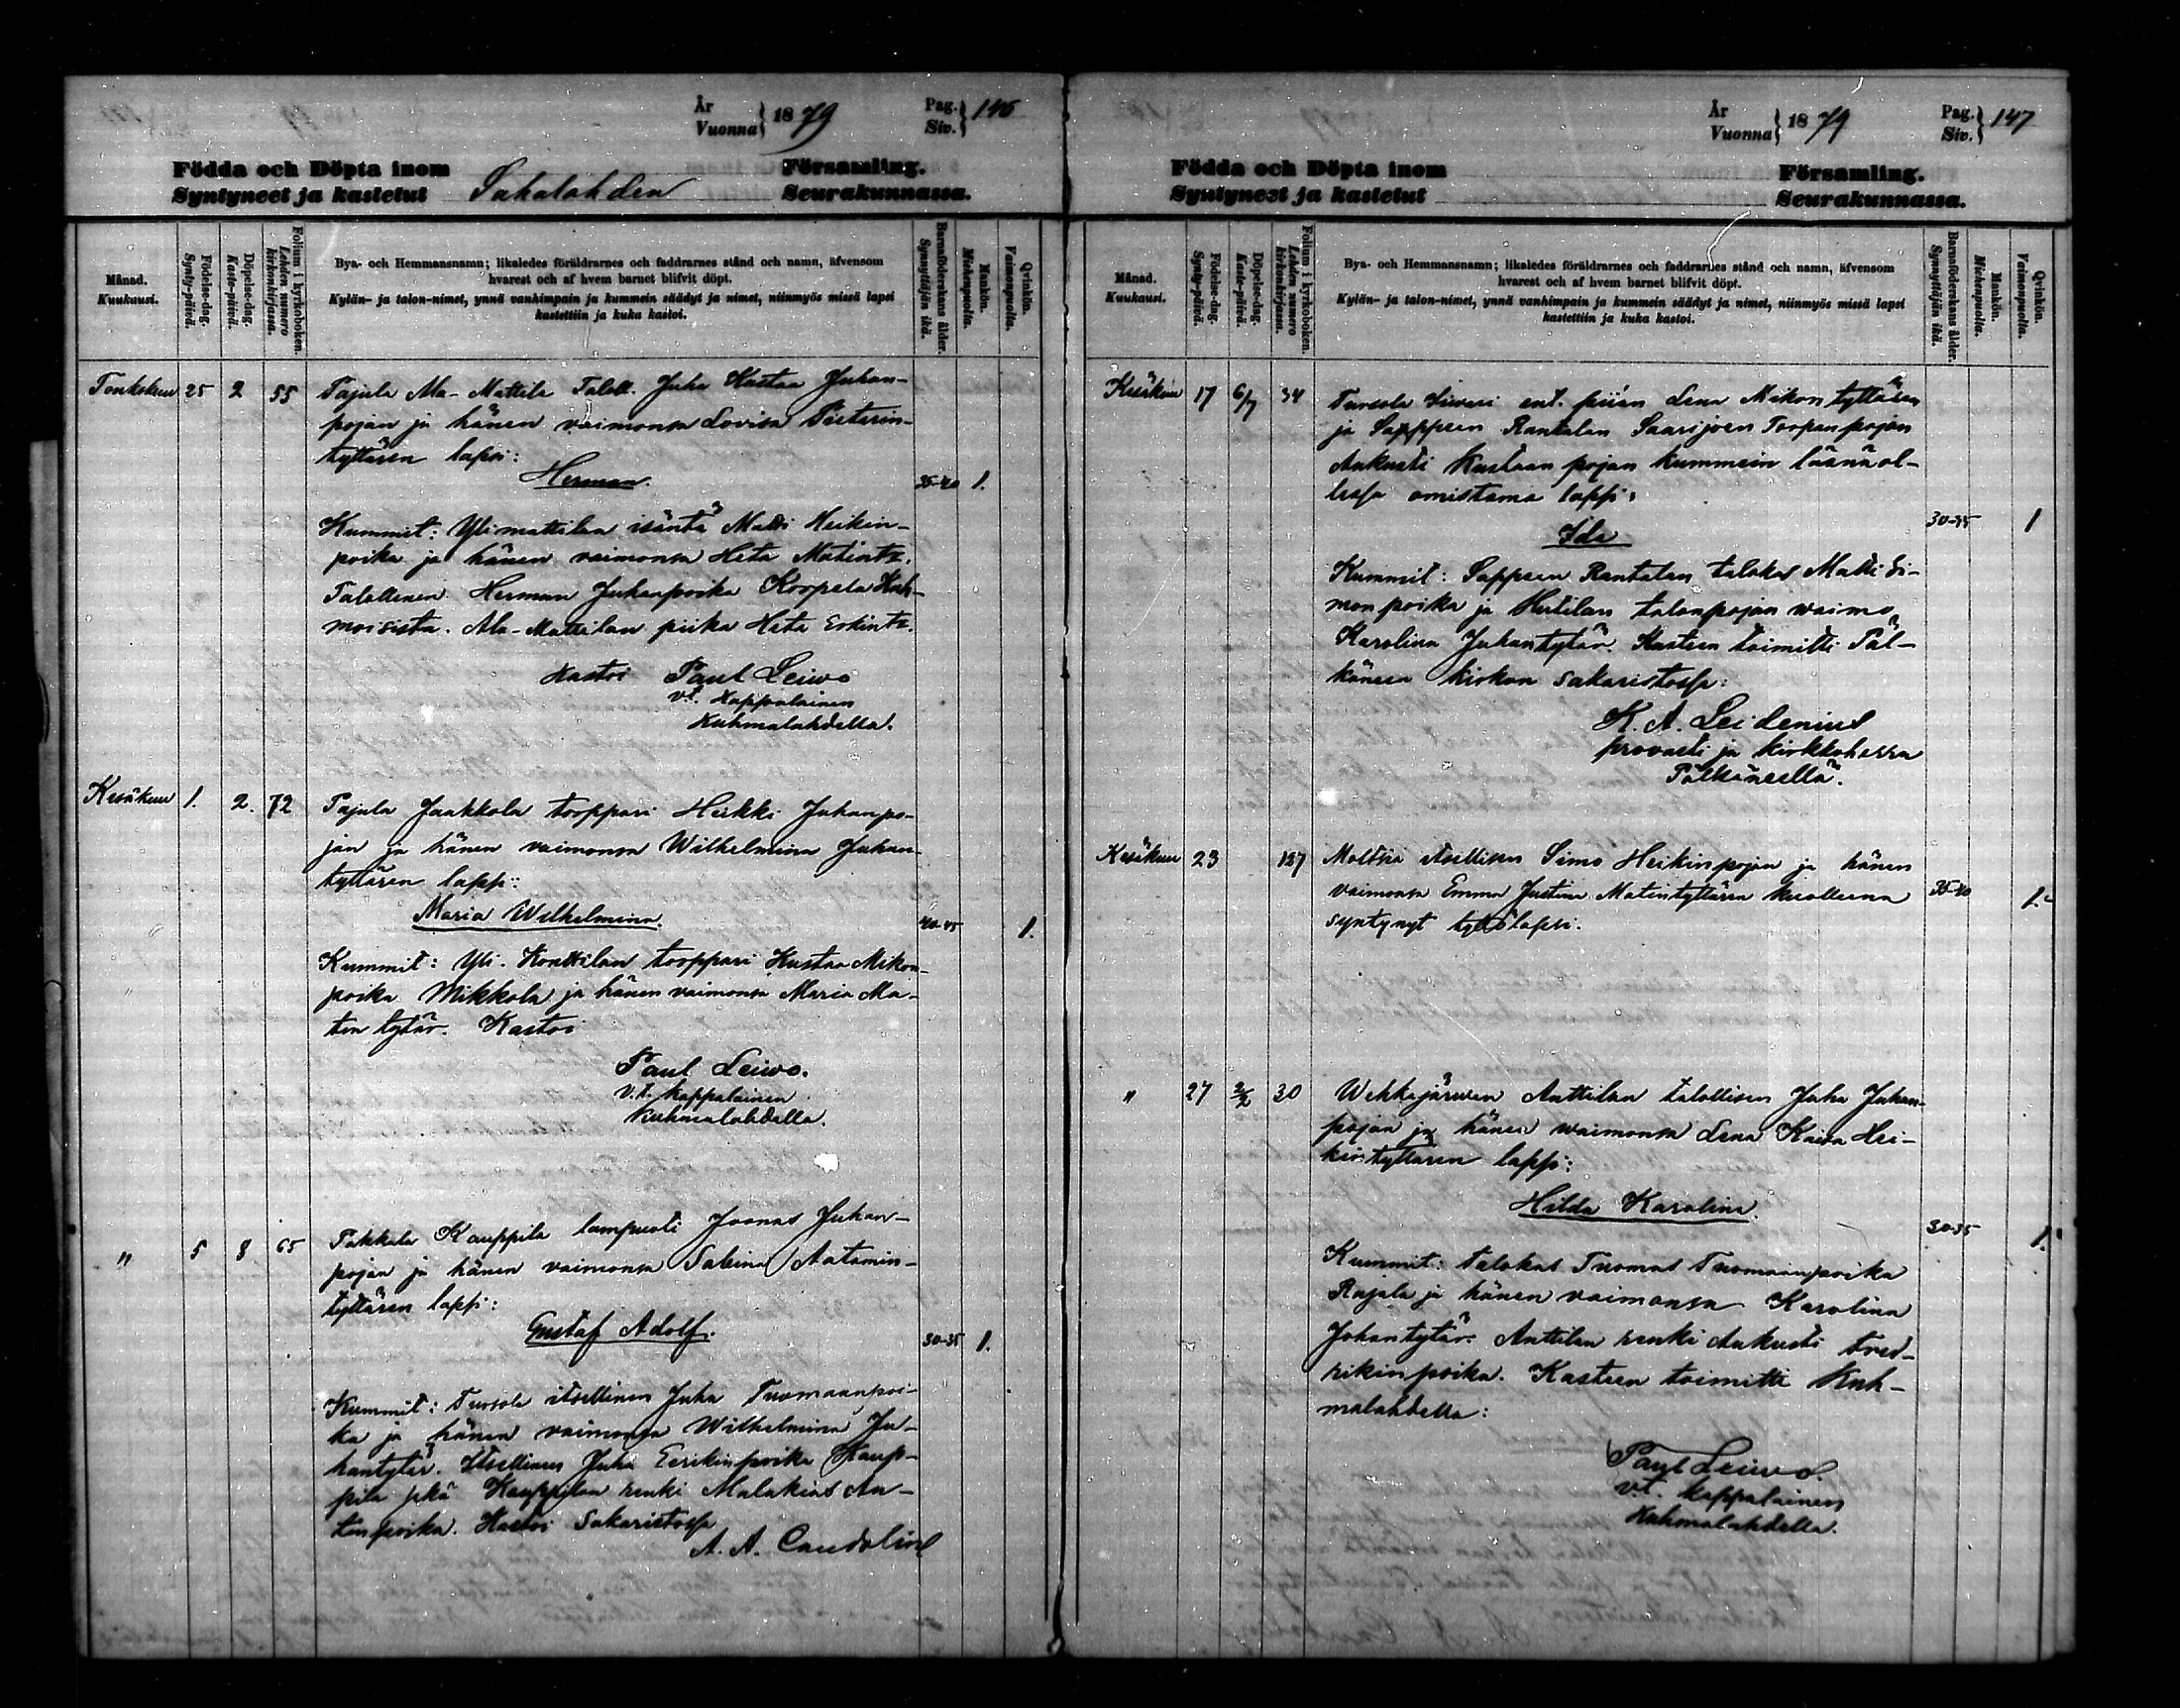 År
Vuonna } 1879 Pag.
Siv. } 146
Födda och Döpta inom Församling.
Syntyneet ja kastetut Sahalahden Seurakunnassa.
Månad.
Kuukausi.
Födelse-dag.
Synty-päivä.
Döpelse-dag.
Kaste-päivä.
Folium i kyrkoboken.
Lehden numero
kirkonkirjassa.
Bya- och Hemmansnamn; likaledes föräldrarnes och faddrarnes stånd och namn, äfvensom
hvarest och af hvem barnet blifvit döpt.
Kylän- ja talon-nimet, ynnä vanhimpain ja kummein säädyt ja nimet, niinmyös missä lapsi
kastettiin ja kuka kastoi.
Barnaföderskans ålder.
Synnyttäjän ikä.
Mankön.
Miehenpuolta.
Qvinkön.
Vaimonpuolta.
Toukokuu 25 2 55 Pajula Ala-Mattila Taloll. Juha Kustaa Juhan-
pojan ja hänen vaimonsa Lovisa Pietarin-
tyttären lapsi:
Herman. 35-40 1.
Kummit: Ylimattilan isäntä Matti Heikin-
poika ja hänen vaimonsa Heta Matintr.
Talollinen Herman Juhanpoika Koopala Kuh-
moisista. Ala-Mattilan piika Heta Erkintr.
Kastoi Paul Leiwo
v.t. Kappalainen
Kuhmalahdella.
Kesäkuu 1. 2. 72 Pajula Jaakkola torppari Heikki Juhanpo-
jan ja hänen vaimonsa Wilhelmina Juhan-
tyttären lapsi:
Maria Wilhelmina. 40-45 1.
Kummit: Yli-Konttilan torppari Kustaa Mikon-
poika Mikkola ja hänen vaimonsa Maria Ma-
tin tytär. Kastoi
Paul Leiwo.
v.t. kappalainen
Kuhmalahdella.
" 5 8 65 Pakkala Kauppila lampuoti Joonas Juhan-
pojan ja hänen vaimonsa Sabina Aatamin-
tyttären lapsi:
Gustaf Adolf. 30-35 1.
Kummit: Tursola itsellinen Juha Tuomaanpoi-
ka ja hänen vaimonsa Wilhelmina Ju-
hantytär. Itsellinen Juha Eerikinpoika Kaup-
pila sekä Kauppilan renki Malakias An-
tinpoika. Kastoi Sakaristossa
A. A. Candolin
År
Vuonna } 1879 Pag.
Siv. } 147
Födda och Döpta inom Församling.
Syntyneet ja kastetut Seurakunnassa.
Månad.
Kuukausi.
Födelse-dag.
Synty-päivä.
Döpelse-dag.
Kaste-päivä.
Folium i kyrkoboken.
Lehden numero
kirkonkirjassa.
Bya- och Hemmansnamn; likaledes föräldrarnes och faddrarnes stånd och namn, äfvensom
hvarest och af hvem barnet blifvit döpt.
Kylän- ja talon-nimet, ynnä vanhimpain ja kummein säädyt ja nimet, niinmyös missä lapsi
kastettiin ja kuka kastoi.
Barnaföderskans ålder.
Synnyttäjän ikä.
Mankön.
Miehenpuolta.
Qvinkön.
Vaimonpuolta.
Kesäkuu 17 6/7 34 Tursola ent. piian Lena Mikontyttären
ja Sappeen Rantalan Saarijoen Torpanpojan
Aukusti Kustaan pojan kummein läsnäol-
lessa omistama lapsi:
Ida 30-35 1
Kummit: Sappeen Rantalan talokas Matti Si-
monpoika ja Hutilan talonpojan vaimo
Karolina Juhantytär. Kasteen toimitti Päl-
käneen kirkon sakaristossa:
K. A. Leidenius
provasti ja kirkkoherra
Pälkäneellä.
Kesäkuu 23 127 Moltsia itsellisen Simo Heikinpojan ja hänen
vaimonsa Emma Justina Matintyttären kuolleena 35-40 1.
syntynyt tyttölapsi.
" 27 2/2 30 Wehkajärven Anttilan talollisen Juha Juhan-
pojan ja hänen waimonsa Lena Kaisa Hei-
kintyttären lapsi:
Hilda Karolina. 30-35 1.
Kummit: talokas Tuomas Tuomaanpoika
Rajala ja hänen vaimonsa Karolina
Johantytär. Anttilan renki Aukusti Fred-
rikinpoika. Kasteen toimitti Kuh-
malahdella:
Paul Leiwo
v.t. kappalainen
Kuhmalahdella.